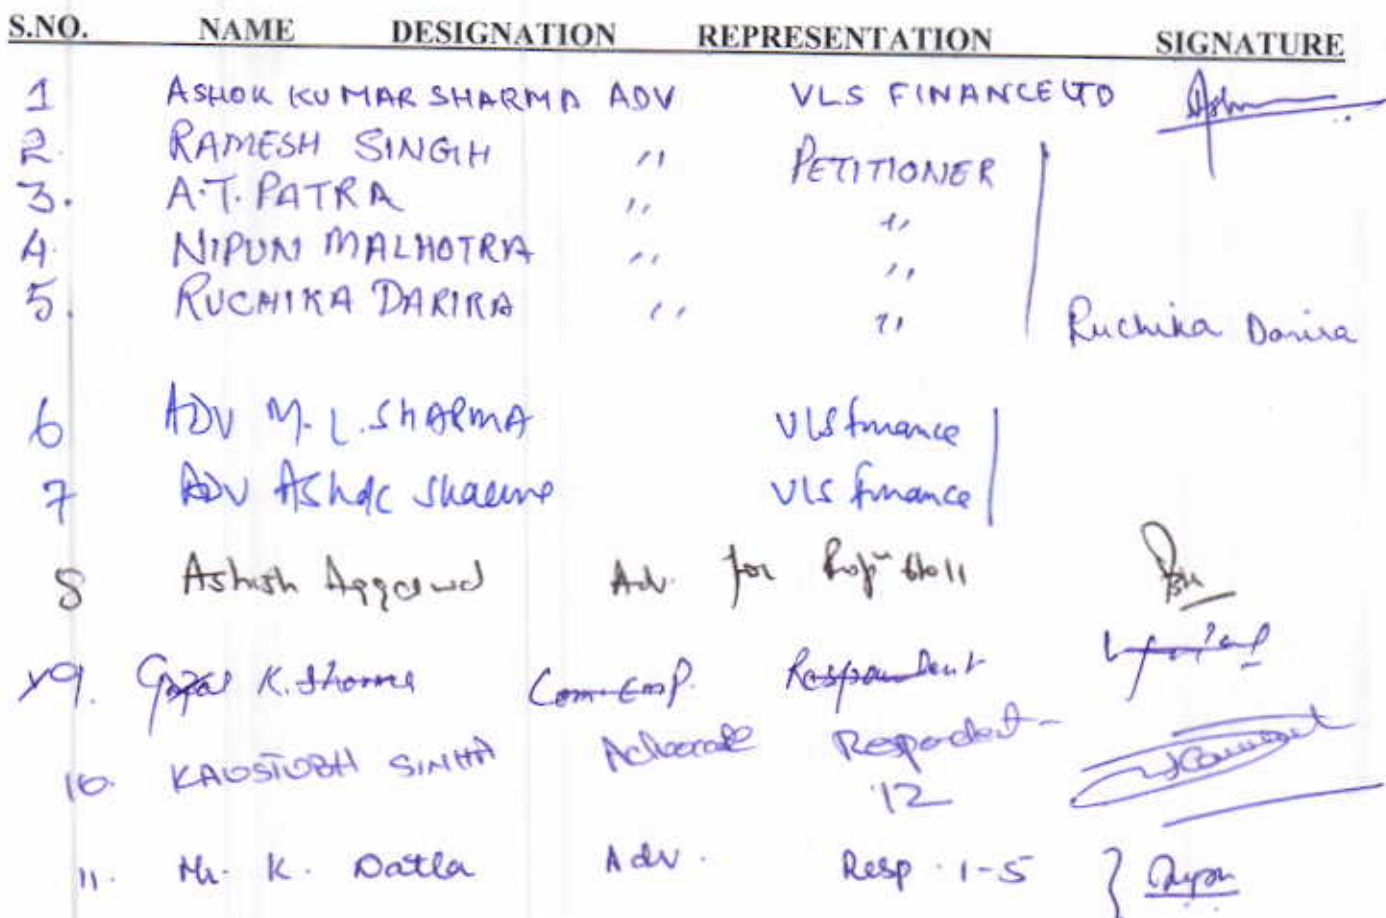 S.NO. NAME DESIGNATION REPRESENTATION SIGNATURE
1 ASHOK KUMAR SHARMA ADV VLS FINANCE LTD
2. RAMESH SINGH " PETITIONER
3. A.T. PATRA " "
4. NIPUN MALHOTRA " "
5. RUCHIKA DARIRA " " Ruchika Darira
6 ADV M.L. SHARMA VLS finance
7 ADV Ashok Sharma VLS finance
8 Ashish Aggarwal Adv. for 6 to 11
9. K. Sharma Respondent
10. KAUSTUBH SINHA Advocate Respondent-
12
11. Mr. K. Datla Adv. Resp. 1-5